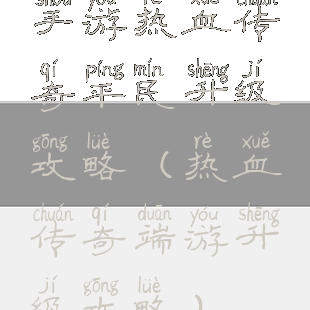 shǒu yóu rè xuè chuán
手游热血传
qí píng mín shēng jí
奇平民升级
gōng lüè rè xuě
攻略(热血
chuán qí duān yóu shēng
传奇端游升
jí gōng lüè
级攻略)